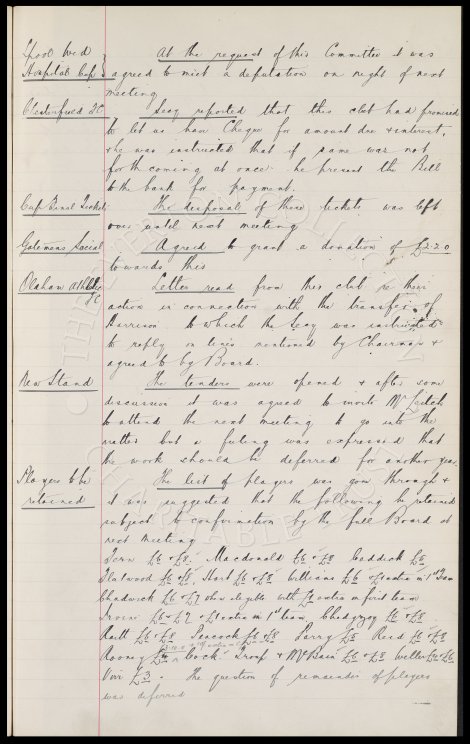 L'pool Wed At the request of this Committee it was
Hospital Cup agreed to meet a deputation on night of next
meeting
Chesterfield FC Secy reported that this club had promised
to let us have Cheque for amount due & interest,
& he was instructed that if same was not
forthcoming at once he present the Bill
to the bank for payment.
Cup Final Tickets The disposal of these tickets was left
over until next meeting
Gatemens Social Agreed to grant a donation of £2-2-0
towards this
Oldham Athletic Letter read from this club re their
FC action in connection with the transfer of
Harrison to which the Secy was instructed
to reply on lines mentioned by Chairman &
agreed to by Board.
New Stand The tenders were opened & after some
discussion it was agreed to invite Mr Leitch
to attend the next meeting to go into the
matter but a feeling was expressed that
the work should be deferred for another year.
Players to be The list of players was gone through &
retained it was suggested that the following be retained
subject to confirmation by the full Board at
next meeting
Fern £6 & £8. Macdonald £6 & £8 Caddick £5
Fleetwood £6 & £8, Hart £6 & £8 Williams £6 & £1 extra in 1st Team
Chadwick £6 & £7 when eligible with £1 extra in first team
Irvine £6 & £7 & £1 extra in 1st team, Chedgzoy £6 & £8
Raitt £6 & £8 Peacock £6 & £8 Parry £5 Reid £6 & £8
Rooney Cock Troup & McBain £6 & £8 Weller
£3. the question of remainder of players
was deferred